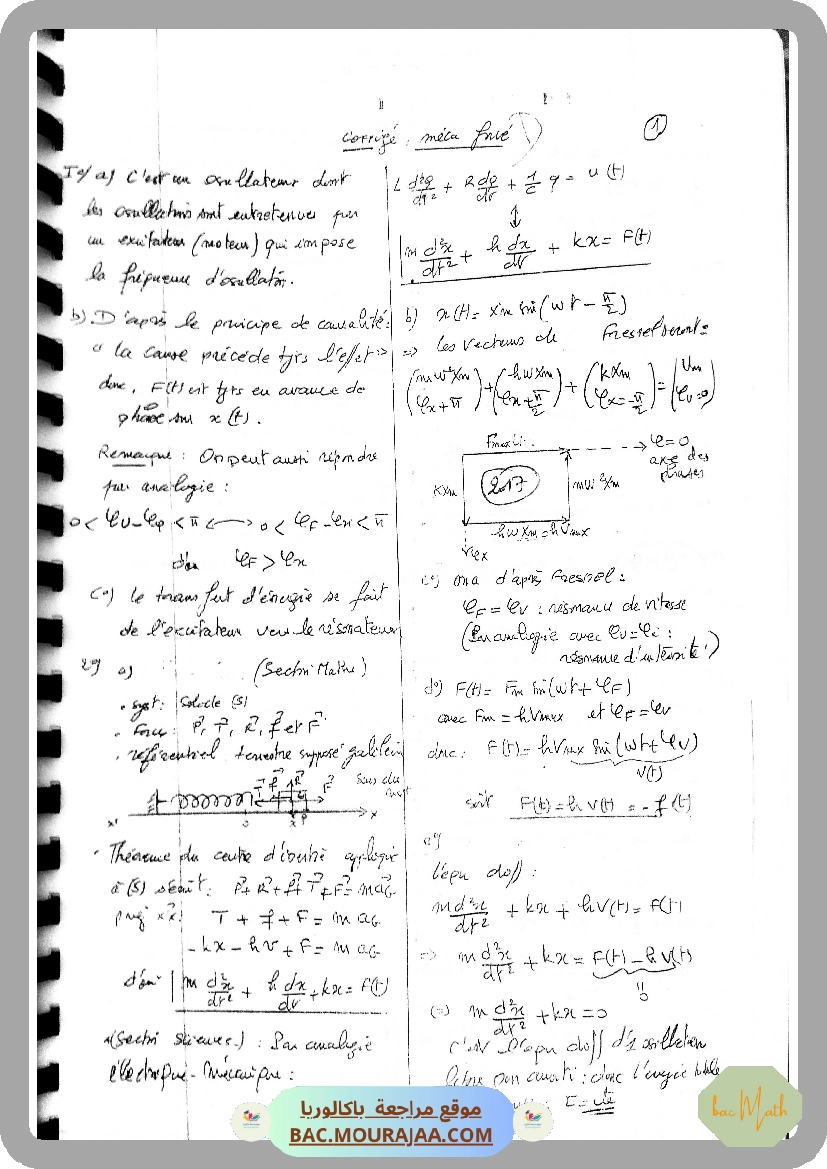 Corrigé : méca forcé
1
I°/ a) C'est un oscillateur dont
les oscillations sont entretenues par
un excitateur (moteur) qui impose
la fréquence d'oscillation.
b) D'après le principe de causalité:
" la cause précède tjrs l'effet "
donc, F(t) est tjrs en avance de
phase sur x(t).
Remarque : On peut aussi répondre
par analogie :
0 < φu - φq < π ⟷ 0 < φF - φx < π
d'où φF > φx
c°) le transfert d'énergie se fait
de l'excitateur vers le résonateur
2°/ a) (Section Maths)
• syst : Solide (S)
• Forces : P, T, R, f et F.
• référentiel terrestre supposé galiléen
T f R F sens du mvt
x' o x P x
• Théorème du centre d'inertie appliqué
à (S) s'écrit : P + R + f + T + F = m aG
proj x'x : T + f + F = m aG
- kx - hv + F = m aG
d'où | m d²x/dt² + h dx/dt + kx = F(t)
(Section Sciences) : Par analogie
électrique - Mécanique :
L d²q/dt² + R dq/dt + 1/C q = u(t)
↕
m d²x/dt² + h dx/dt + kx = F(t)
b) x(t) = Xm sin(wt - π/2)
=> les vecteurs de Fresnel seront :
(mw²Xm φx + π) + (hwXm φx + π/2) + (kXm φx = -π/2) = (Um φu = 0)
φ = 0
axe des
phases
kXm 2017 mw²Xm
hwXm = hVmax
φx
c°) on a d'après Fresnel :
φF = φv : résonance de vitesse
(Par analogie avec φu = φi :
résonance d'intensité)
d°) F(t) = Fm sin(wt + φF)
avec Fm = hVmax et φF = φv
donc : F(t) = hVmax sin(wt + φv)
v(t)
soit F(t) = h v(t) = - f(t)
e°/
l'équ diff :
m d²x/dt² + kx + hv(t) = F(t)
=> m d²x/dt² + kx = F(t) - hv(t)
= 0
(=) m d²x/dt² + kx = 0
c'est l'équ diff d'oscillation
libre non amorti : donc l'énergie totale
E = cte
موقع مراجعة باكالوريا
BAC.MOURAJAA.COM
bac Math